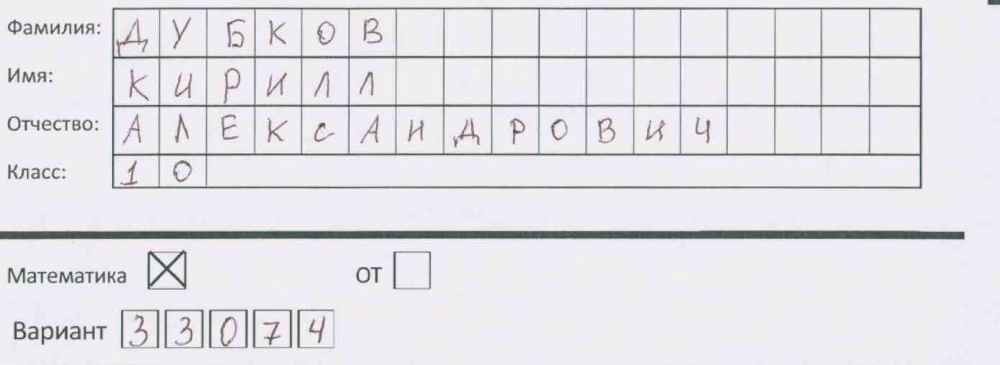 Фамилия: ДУБКОВ
Имя: КИРИЛЛ
Отчество: АЛЕКСАНДРОВИЧ
Класс: 10
Математика ☒ ОТ ☐
Вариант 33074